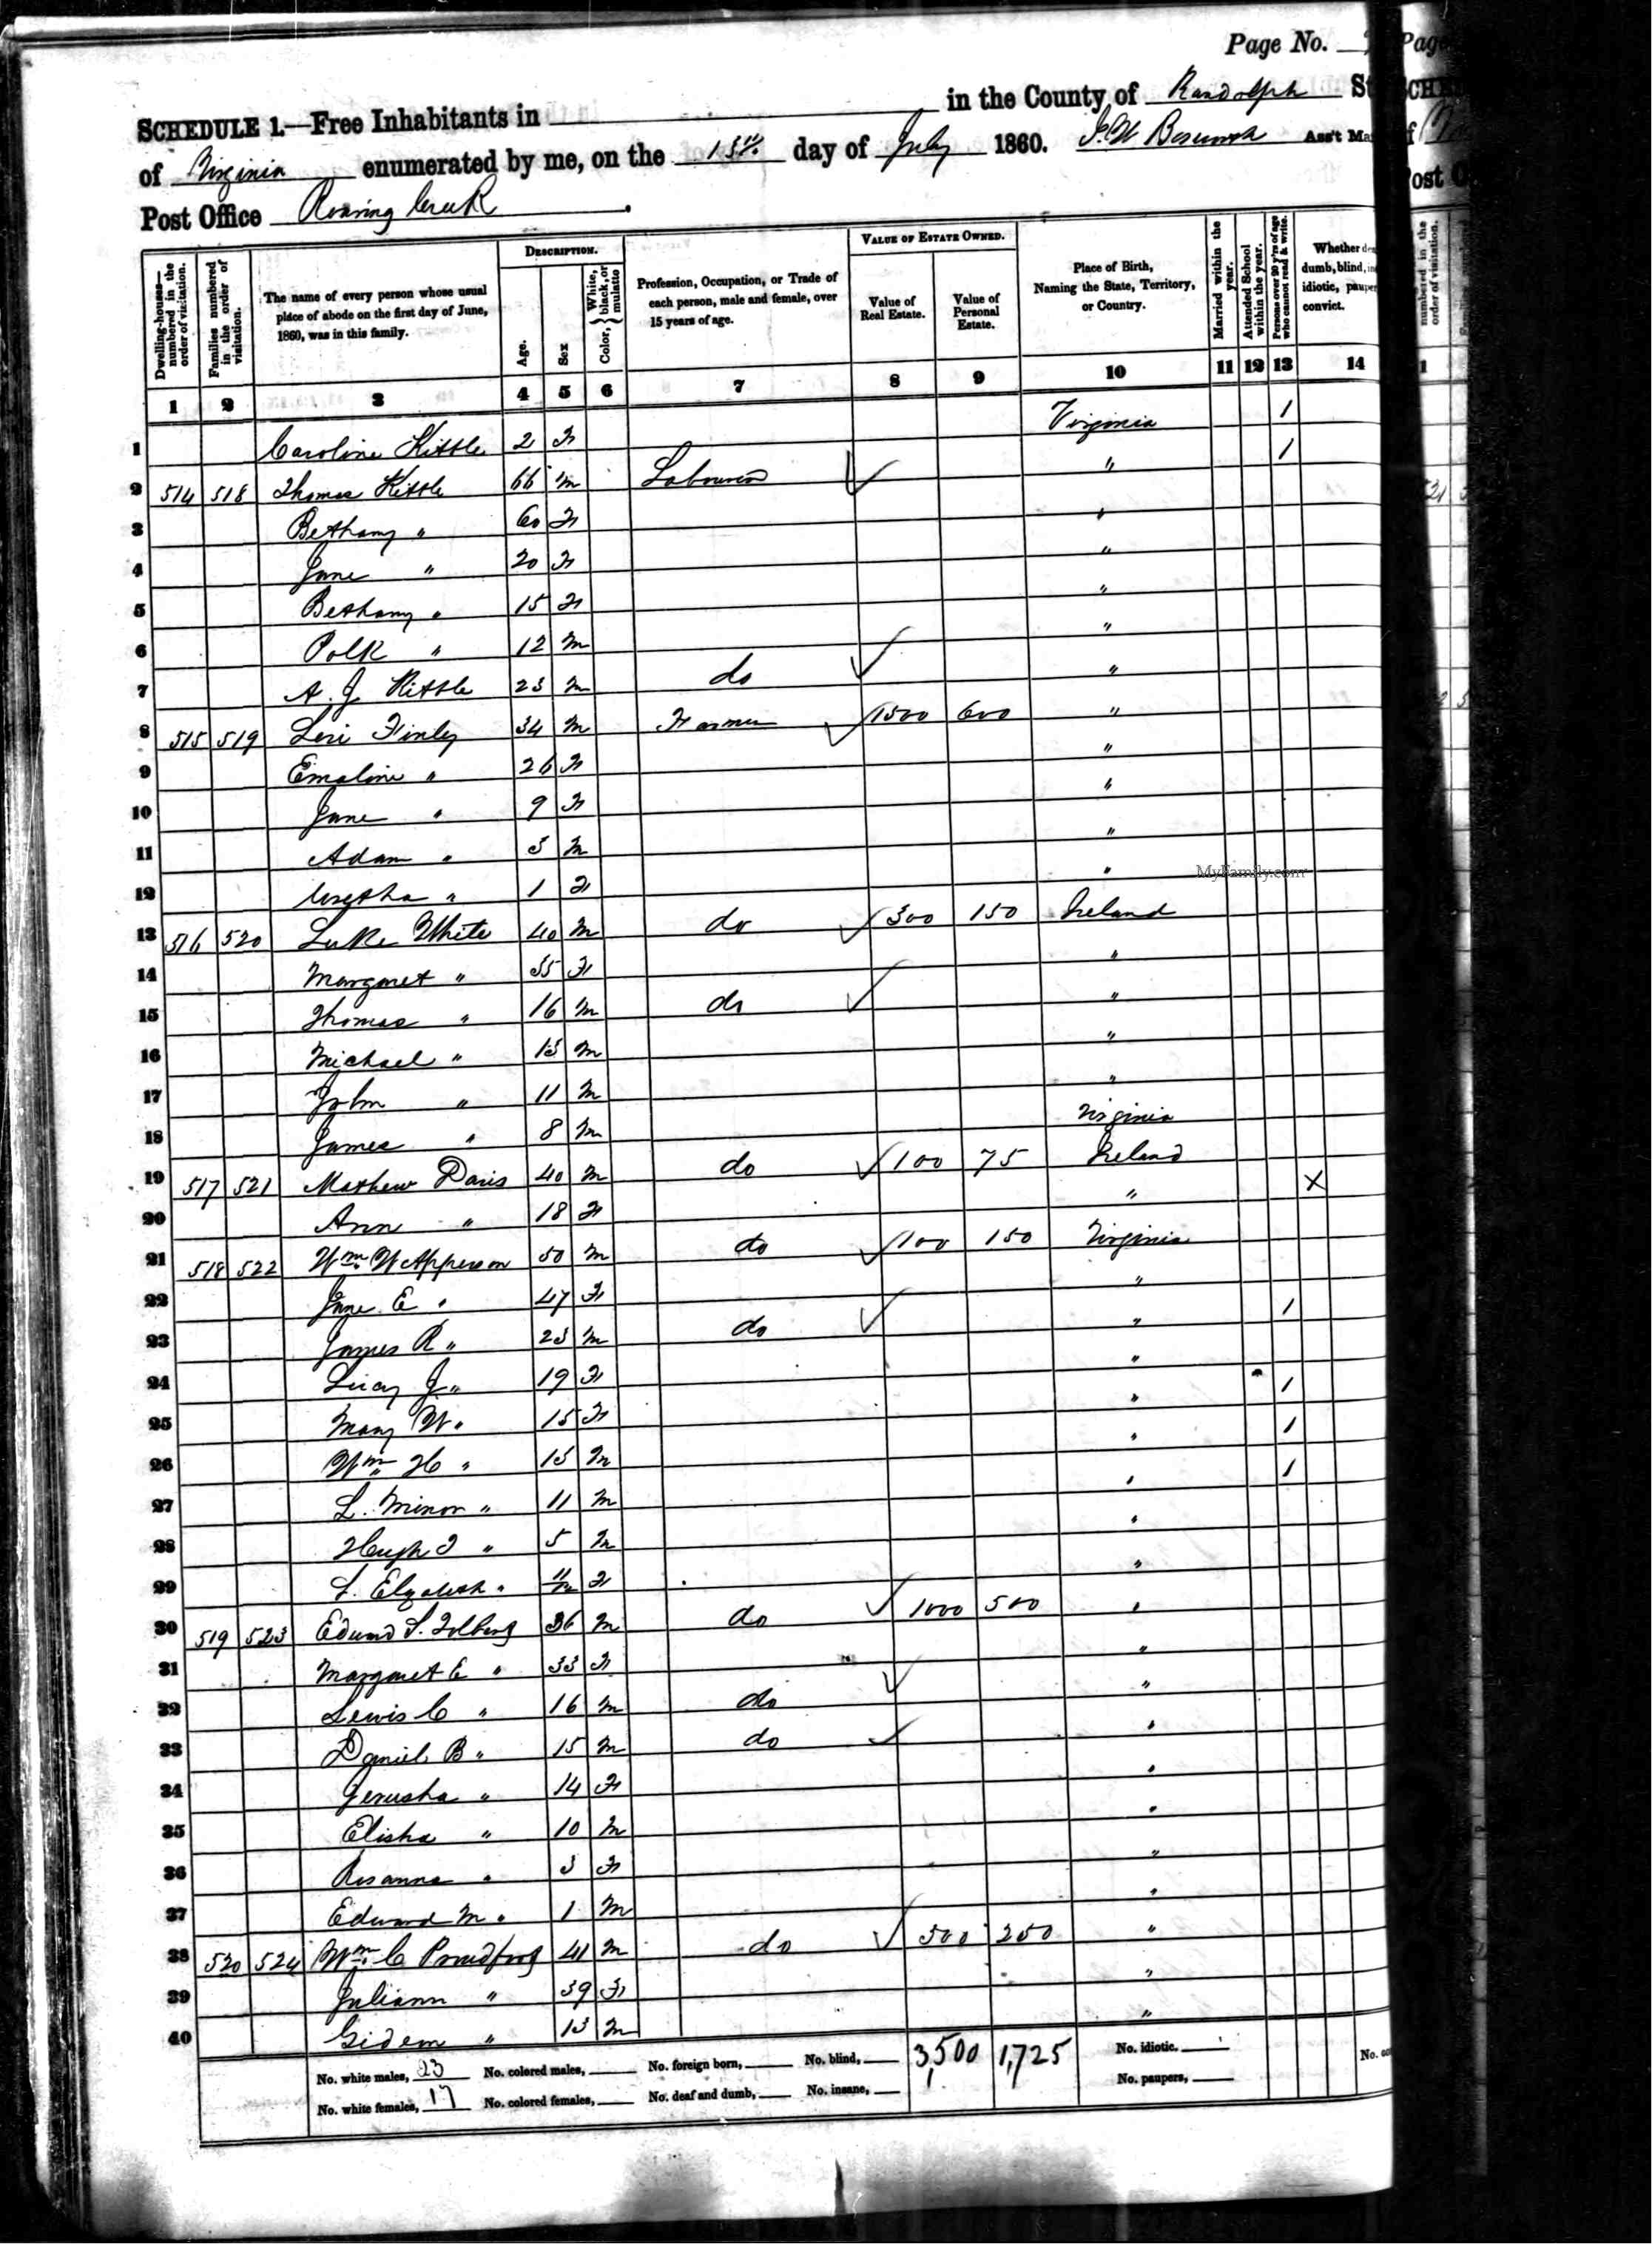 Page No.
SCHEDULE 1.—Free Inhabitants in in the County of Randolph St
of Virginia enumerated by me, on the 13th day of July 1860. Ass't Ma
Post Office Roaring Creek
Dwelling-houses—numbered in the order of visitation.
Families numbered in the order of visitation.
The name of every person whose usual place of abode on the first day of June, 1860, was in this family.
DESCRIPTION.
Age.
Sex
Color, White, black, or mulatto
Profession, Occupation, or Trade of each person, male and female, over 15 years of age.
VALUE OF ESTATE OWNED.
Value of Real Estate.
Value of Personal Estate.
Place of Birth, Naming the State, Territory, or Country.
Married within the year.
Attended School within the year.
Persons over 20 y'rs of age who cannot read & write.
Whether dumb, blind, idiotic, convict.
1 2 3 4 5 6 7 8 9 10 11 12 13 14
1 Caroline Kittle 2 F Virginia /
2 514 518 Thomas Kittle 66 M Labourer " /
3 Bethany " 60 F "
4 Jane " 20 F "
5 Bethany " 15 F "
6 Polk " 12 M "
7 A. J. Kittle 23 M do "
8 515 519 Levi Finley 34 M Farmer 1500 600 "
9 Emaline " 26 F "
10 Jane " 9 F "
11 Adam " 3 M "
12 " 1 F "
13 516 520 Luke White 40 M do 300 150 Ireland
14 Margaret " 35 F "
15 Thomas " 16 M do "
16 Michael " 13 M "
17 John " 11 M "
18 James " 8 M Virginia
19 517 521 Mathew Davis 40 M do 100 75 Ireland
20 Ann " 18 F " X
21 518 522 Wm W Apperson 50 M do 100 150 Virginia
22 Jane E " 47 F "
23 James R " 23 M do " /
24 Lucy J " 19 F "
25 Mary W " 15 F " /
26 Wm H " 13 M " /
27 L. Minor " 11 M " /
28 Hugh " 5 M "
29 " 11/12 F "
30 519 523 36 M do 1000 500 "
31 Margaret E " 33 F "
32 Lewis C " 16 M do "
33 Daniel B " 15 M do "
34 Jerusha " 14 F "
35 Elisha " 10 M "
36 Rosanna " 3 F "
37 Edward M " 1 M "
38 520 524 Wm C Proudfoot 41 M do 500 250 "
39 Juliann " 39 F "
40 Gideon " 13 M "
No. white males, 23 No. colored males, No. foreign born, No. blind, 3,500 1,725 No. idiotic. No.
No. white females, 17 No. colored females, No. deaf and dumb, No. insane, No. paupers,
MyFamily.com